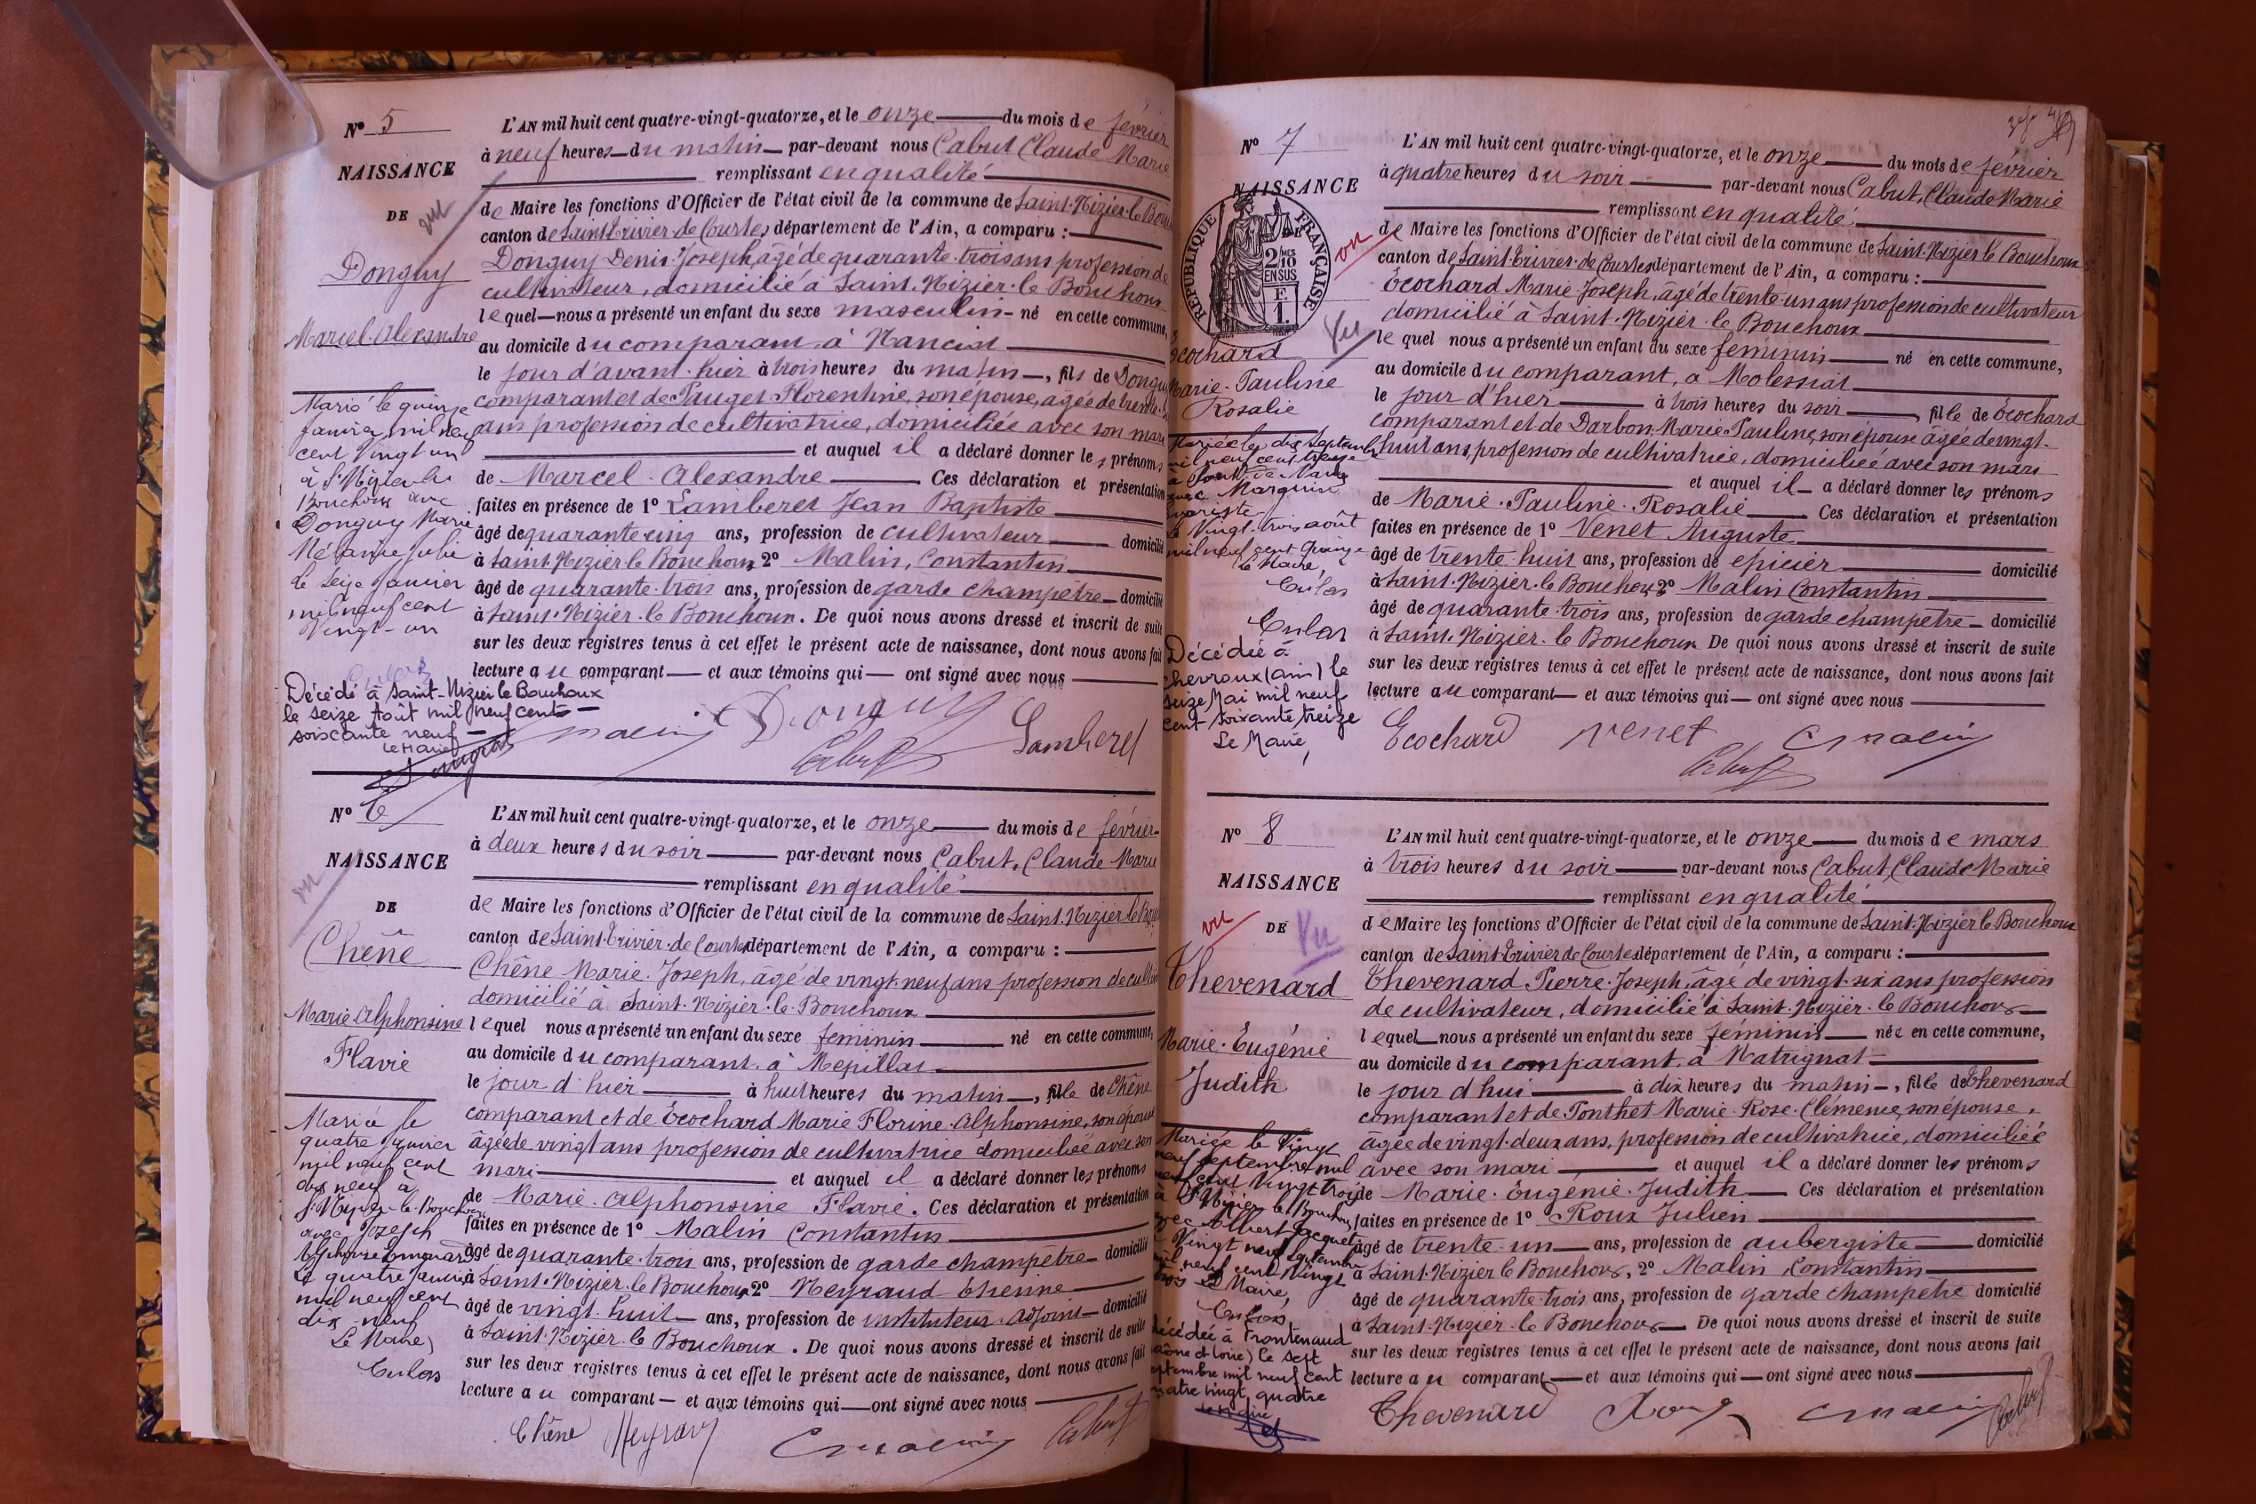 N° 5
NAISSANCE
DE
vu
Donguy
Marcel Alexandre
Marié le quinze
janvier mil neuf
cent vingt un
à St Nizier le
Bouchoux avec
Donguy Marie
Mélanie Julie
Le seize Janvier
mil neuf cent
vingt-un
Décédé à Saint-Nizier le Bouchoux
le seize Août mil neuf cent
soixante neuf
Le Maire
L'AN mil huit cent quatre-vingt-quatorze, et le onze du mois de février
à neuf heures du matin par-devant nous Cabut Claude Marie
remplissant en qualité
de Maire les fonctions d'Officier de l'état civil de la commune de Saint-Nizier-le-Bouchoux
canton de Saint-Trivier-de-Courtes département de l'Ain, a comparu :
Donguy Denis-Joseph, âgé de quarante-trois ans profession de
cultivateur, domicilié à Saint-Nizier-le-Bouchoux
lequel nous a présenté un enfant du sexe masculin né en cette commune,
au domicile du comparant, à Nanciat
le jour d'avant-hier à trois heures du matin, fils de Donguy
comparant et de Pauget Florentine, son épouse, âgée de trente
ans profession de cultivatrice, domiciliée avec son mari
et auquel il a déclaré donner les prénoms
de Marcel-Alexandre Ces déclaration et présentation
faites en présence de 1° Lamberet Jean Baptiste
âgé de quarante cinq ans, profession de cultivateur domicilié
à Saint-Nizier-le-Bouchoux 2° Malin, Constantin
âgé de quarante-trois ans, profession de garde champêtre domicilié
à Saint-Nizier-le-Bouchoux. De quoi nous avons dressé et inscrit de suite
sur les deux registres tenus à cet effet le présent acte de naissance, dont nous avons fait
lecture au comparant et aux témoins qui ont signé avec nous
Malin Donguy Cabut Lamberet
N° 6
NAISSANCE
vu
DE
Chêne
Marie Alphonsine
Flavie
Mariée le
quatre Janvier
mil neuf cent
dix neuf à
St Nizier-le-Bouchoux
avec Joseph
Alphonse
Le quatre Janvier
mil neuf cent
dix-neuf
Le Maire,
Culas
L'AN mil huit cent quatre-vingt-quatorze, et le onze du mois de février
à deux heures du soir par-devant nous Cabut, Claude Marie
remplissant en qualité
de Maire les fonctions d'Officier de l'état civil de la commune de Saint-Nizier-le-Bou
canton de Saint-Trivier-de-Courtes département de l'Ain, a comparu :
Chêne Marie-Joseph, âgé de vingt-neuf ans profession de culti
domicilié à Saint-Nizier-le-Bouchoux
lequel nous a présenté un enfant du sexe féminin né en cette commune,
au domicile du comparant, à Mépillat
le jour d'hier à huit heures du matin, fille de Chêne
comparant et de Écochard Marie Florine-Alphonsine, son épouse
âgée de vingt ans profession de cultivatrice domiciliée avec son
mari et auquel il a déclaré donner les prénoms
de Marie-Alphonsine Flavie. Ces déclaration et présentation
faites en présence de 1° Malin Constantin
âgé de quarante-trois ans, profession de garde champêtre domicilié
à Saint-Nizier-le-Bouchoux 2° Neyraud Etienne
âgé de vingt-huit ans, profession de instituteur-adjoint domicilié
à Saint-Nizier-le-Bouchoux. De quoi nous avons dressé et inscrit de suite
sur les deux registres tenus à cet effet le présent acte de naissance, dont nous avons fait
lecture au comparant et aux témoins qui ont signé avec nous
Chêne Neyraud Malin Cabut
N° 7
NAISSANCE
DE
RÉPUBLIQUE FRANÇAISE
2/10 MES
EN SUS
1 F.
vu
Vu
Écochard
Marie-Pauline
Rosalie
Mariée le dix Septembre
mil neuf cent treize
à Pont-de-Vaux
avec Marguin
le Vingt-trois août
mil neuf cent quinze
Le Maire,
Culas
Culas
Décédée à
Chevroux (Ain) le
seize Mai mil neuf
cent soixante treize
Le Maire,
L'AN mil huit cent quatre-vingt-quatorze, et le onze du mois de février
à quatre heures du soir par-devant nous Cabut, Claude Marie
remplissant en qualité
de Maire les fonctions d'Officier de l'état civil de la commune de Saint-Nizier-le-Bouchoux
canton de Saint-Trivier-de-Courtes département de l'Ain, a comparu :
Écochard Marie-Joseph, âgé de trente-un ans profession de cultivateur
domicilié à Saint-Nizier-le-Bouchoux
lequel nous a présenté un enfant du sexe féminin né en cette commune,
au domicile du comparant, à Molessiat
le jour d'hier à trois heures du soir, fille de Écochard
comparant et de Darbon Marie-Pauline, son épouse âgée de vingt-
huit ans, profession de cultivatrice, domiciliée avec son mari
et auquel il a déclaré donner les prénoms
de Marie-Pauline-Rosalie Ces déclaration et présentation
faites en présence de 1° Venet Auguste
âgé de trente-huit ans, profession de épicier domicilié
à Saint-Nizier-le-Bouchoux 2° Malin Constantin
âgé de quarante-trois ans, profession de garde champêtre domicilié
à Saint-Nizier-le-Bouchoux De quoi nous avons dressé et inscrit de suite
sur les deux registres tenus à cet effet le présent acte de naissance, dont nous avons fait
lecture au comparant et aux témoins qui ont signé avec nous
Ecochard Venet Malin
Cabut
N° 8
NAISSANCE
vu
DE
Vu
Thevenard
Marie-Eugénie
Judith
Mariée le Vingt
neuf Septembre mil
neuf cent Vingt trois
à St Nizier le Bouchoux
avec Albert Jacquet
Vingt neuf Septembre
mil neuf cent Vingt
trois Le Maire,
Culas
Décédée à Frontenaud
(Saône et Loire) le sept
septembre mil neuf cent
quatre vingt quatre
Le Maire
L'AN mil huit cent quatre-vingt-quatorze, et le onze du mois de mars
à trois heures du soir par-devant nous Cabut, Claude Marie
remplissant en qualité
de Maire les fonctions d'Officier de l'état civil de la commune de Saint-Nizier-le-Bouchoux
canton de Saint-Trivier-de-Courtes département de l'Ain, a comparu :
Thevenard Pierre-Joseph, âgé de vingt-six ans profession
de cultivateur, domicilié à Saint-Nizier-le-Bouchoux
lequel nous a présenté un enfant du sexe féminin née en cette commune,
au domicile du comparant, à Matrignat
le jour d'hui à dix heures du matin, fille de Thevenard
comparant et de Ponthet Marie-Rose-Clémence, son épouse,
âgée de vingt-deux ans, profession de cultivatrice, domiciliée
avec son mari et auquel il a déclaré donner les prénoms
de Marie-Eugénie-Judith Ces déclaration et présentation
faites en présence de 1° Roux Julien
âgé de trente-un ans, profession de aubergiste domicilié
à Saint-Nizier le Bouchoux, 2° Malin, Constantin
âgé de quarante-trois ans, profession de garde champêtre domicilié
à Saint-Nizier-le-Bouchoux De quoi nous avons dressé et inscrit de suite
sur les deux registres tenus à cet effet le présent acte de naissance, dont nous avons fait
lecture au comparant et aux témoins qui ont signé avec nous
Thevenard Roux Malin Cabut